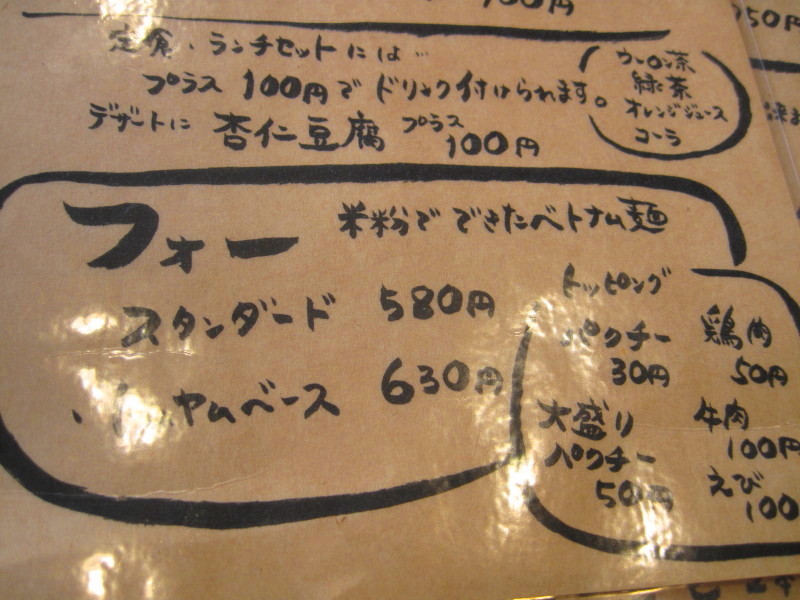 定食、ランチセットには…
プラス 100円で ドリンク付けられます。
ウーロン茶
緑茶
オレンジジュース
コーラ
デザートに 杏仁豆腐 プラス 100円
フォー 米粉でできたベトナム麺
スタンダード 580円
ヤムベース 630円
トッピング
パクチー 30円
鶏肉 50円
大盛りパクチー 50円
牛肉 100円
えび 100